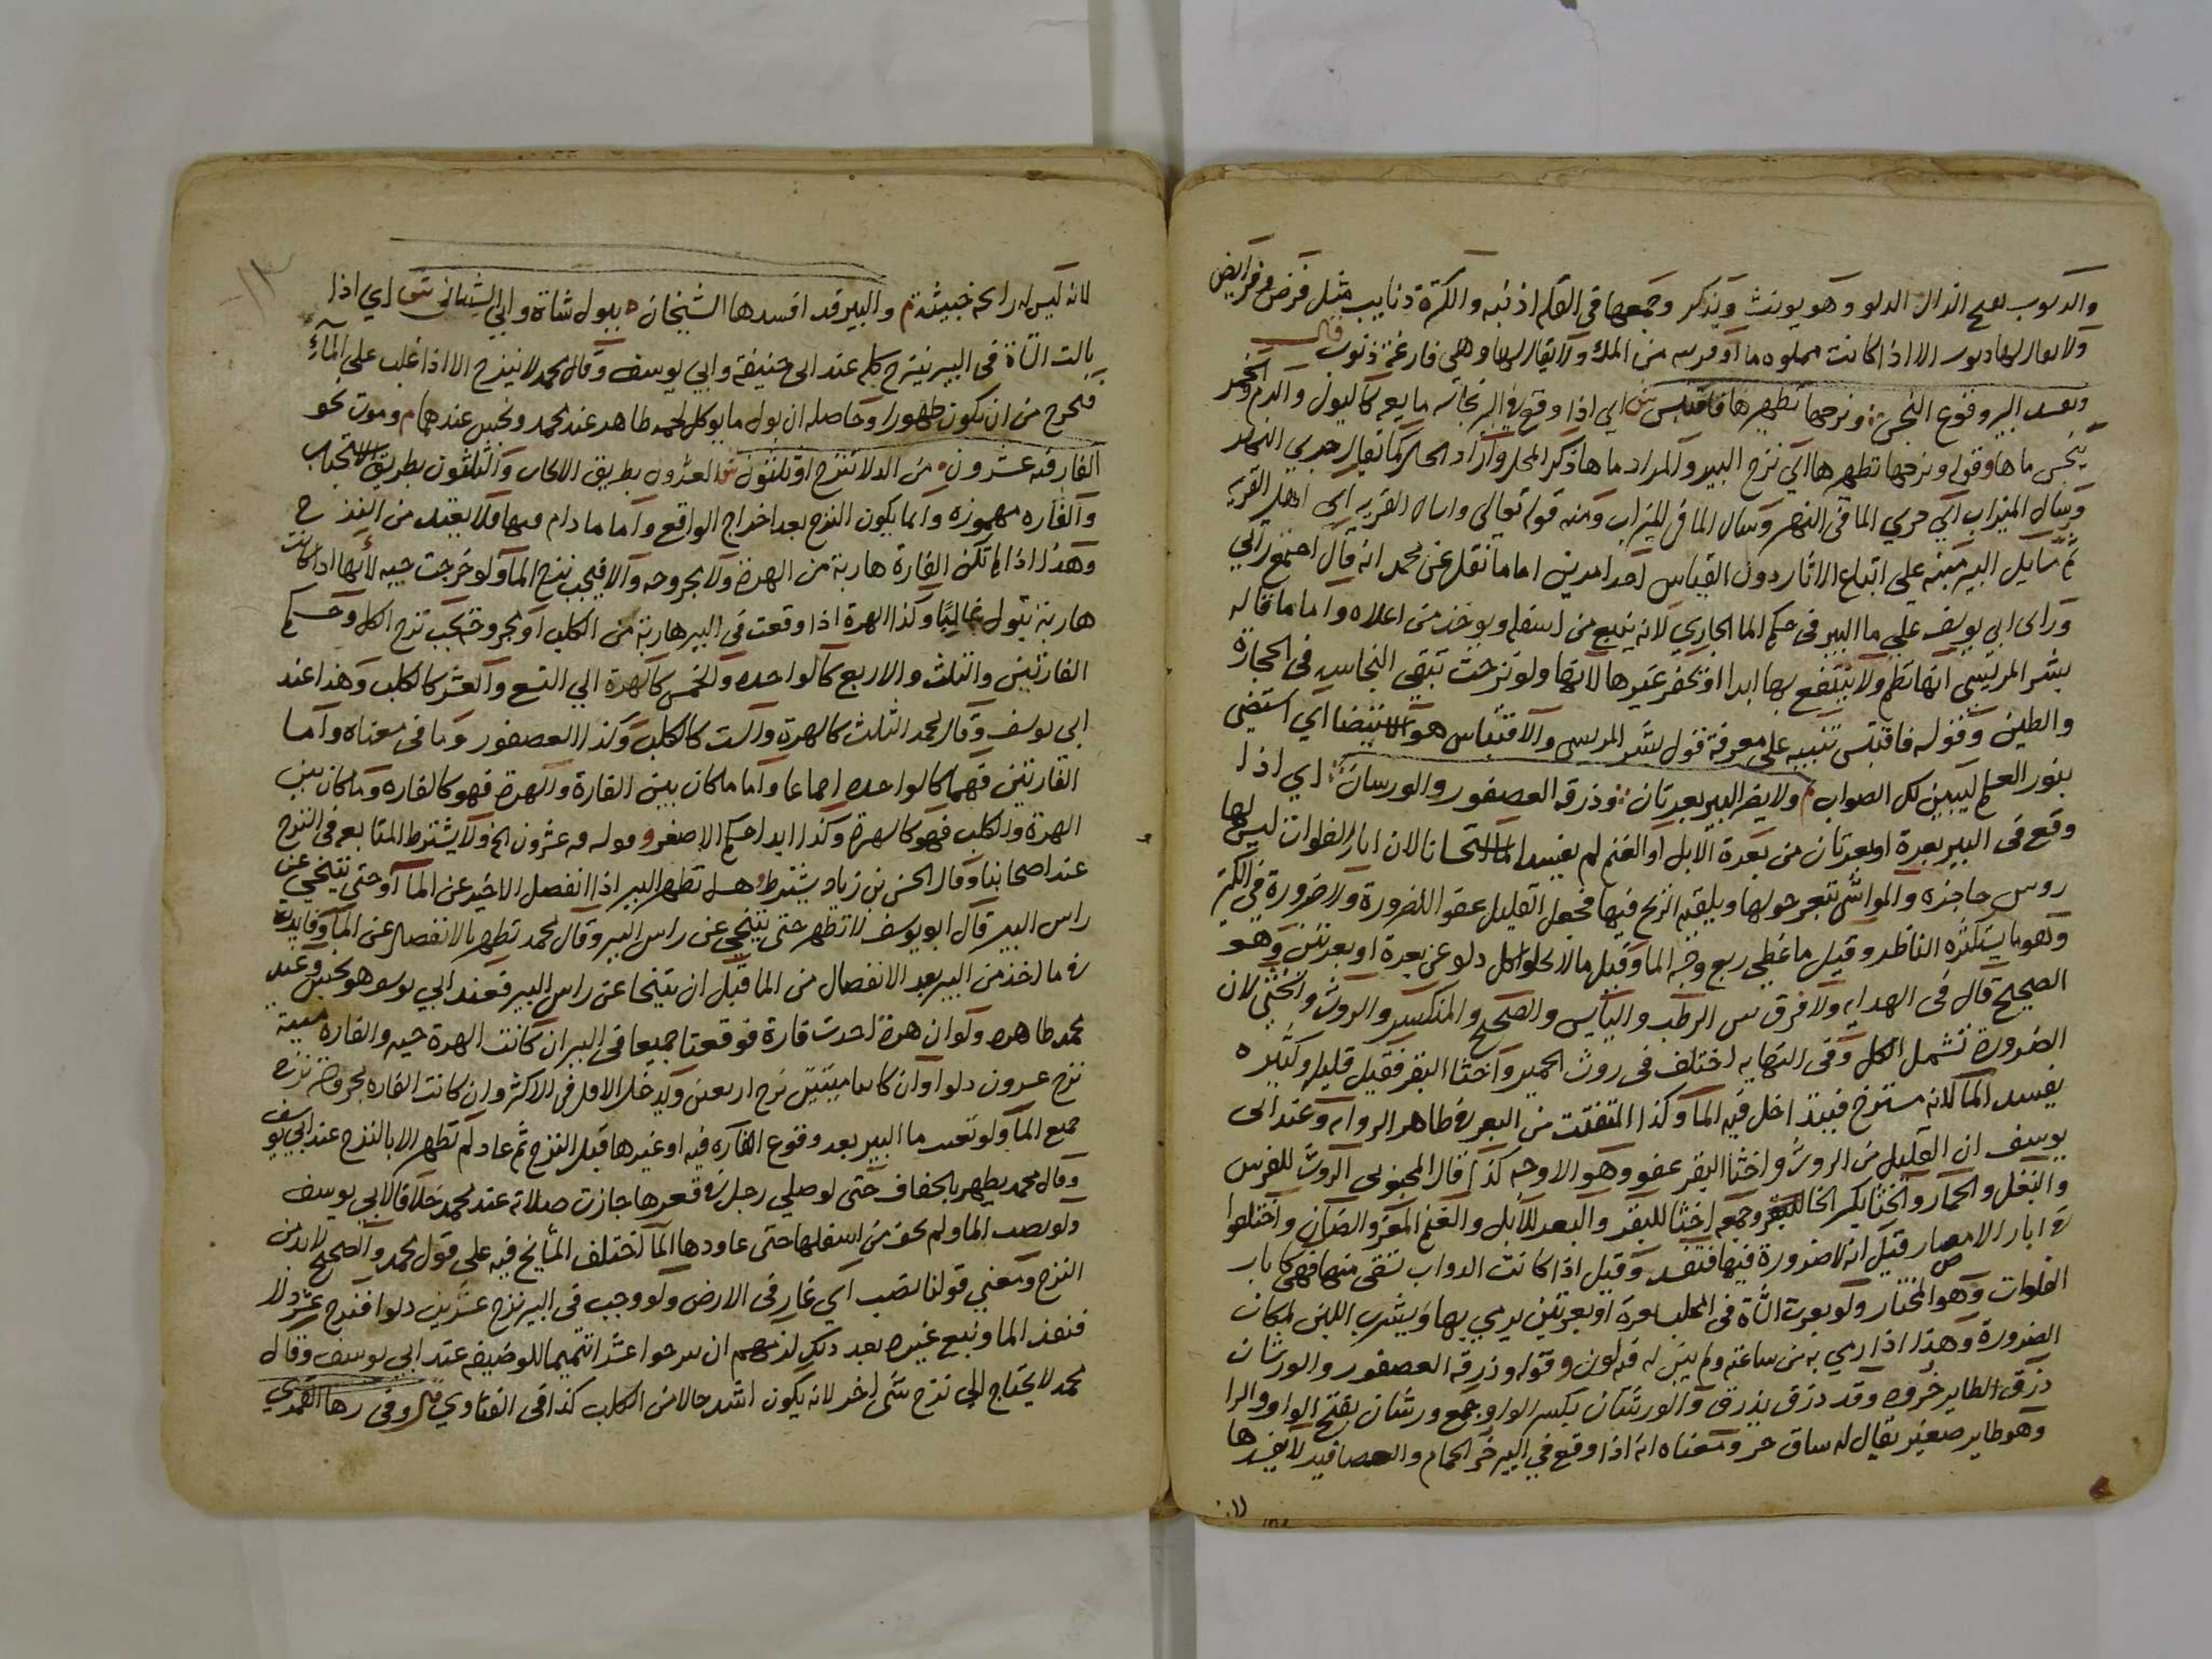 والذنوب بفتح الذال الدلو وهو يونث ويذكر وجمعها في القلة اذنبه والكثرة ذنايب مثل فرض وفرايض
ولا يقال لها ذنوب الا اذا كانت مملوه ماء او قريبه من الملء ولا يقال لها وهي فارغة ذنوب قال
ويفسد البير وقوع النجس ونزحها تطهيرها فاقتبس ش اي اذا وقع في البير نجاسه مايعه كالبول والدم والخمر
ينجس ماها وقوله ونزحها تطهيرها اي نزح البير والمراد ماها ذكر المحل واراد الحال كما يقال جري النهر
وسال الميزاب اي جري الما في النهر وسال الما في الميزاب ومنه قوله تعالي واسال القرية اي اهل القرية
ثم مسايل البير مبنيه علي اتباع الاثار دون القياس احد امرين اما ما نقل عن محمد انه قال اجتمع رايي
وراي ابي يوسف علي ما البير في حكم الما الجاري لانه ينبع من اسفله ويوخذ من اعلاه واما ما قاله
بشر المريسي انها تطم ولا ينتفع بها ابدا او يحفر غيرها لانها ولو نزحت تبقي النجاسه في الحجارة
والطين وقوله فاقتبس تنبيه علي معرفة قول بشر المريسي والاقتباس هو الاستيضا اي استضي
بنور العلم ليبين لك الصواب م ولا يضر البير بعرتان وذرقه العصفور والورشان ش اي اذا
وقع في البير بعرة او بعرتان من بعرة الابل او الغنم لم يفسد الما استحسانا لان ابار الفلوات ليس لها
روس حاجزه والمواشي تبعر حولها ويلقيه الريح فيها فجعل القليل عفوا للضرورة ولا ضرورة في الكثير
وهو ما يستكثره الناظر وقيل ما غطي ربع وجه الما وقيل ما لا يخلوا كل دلو عن بعرة او بعرتين وهو
الصحيح قال في الهدايه ولا فرق بين الرطب واليابس والصحيح والمنكسر والروث والخثي لان
الضرورة تشمل الكل وفي النهايه اختلف في روث الحمير واخثا البقر فقيل قليله وكثيره
يفسد الما لانه مسترخ فيتداخل فيه الما وكذا المتفتت من البعر في ظاهر الروايه وعند ابي
يوسف ان القليل من الروث واخثا البقر عفو وهو الاوجه كذا قال المحبوبي الروث للفرس
والبغل والحمار والخثا بكسر الخا للبقر وجمعه اخثا للبقر والبعر للابل والغنم المعز والضان واختلفوا
في ابار الامصار قيل انه لا ضرورة فيها فتفسد وقيل اذا كانت الدواب تسقي منها فهي كابار
الفلوات وهو المختار ولو بعرت الشاة في المحلب بعرة او بعرتين يرمي بها ويشرب اللبن لمكان
الضرورة وهذا اذا رمي به من ساعته ولم يبن له فيه لون وقوله وذرقه العصفور والورشان
ذرق الطاير خروه وقد ذرق يذرق والورشان بكسر الواو جمع ورشان بفتح الواو والرا
وهو طاير صغير يقال له ساق حر ومعناه انه اذا وقع في البير خر الحمام والعصافير لا يفسدها
لانه
لانه ليس له رايحه خبيثة م والبير قد افسدها الشيخان ببول شاة وابي الشيباني ش اي اذا
بالت الشاة في البير ينزح كله عند ابي حنيفه وابي يوسف وقال محمد لا ينزح الا اذا غلب علي الماء
فيخرج من ان يكون طهورا وحاصله ان بول ما يوكل لحمه طاهر عند محمد ونجس عندهما م وموت نحو
الفار فيه عشرون من الدلا تنزح او ثلثون ش العشرون بطريق الايجاب والثلثون بطريق الاستحباب
والفاره مهموزه وانما يكون النزح بعد اخراج الواقع واما ما دام فيها فلا يعتد من النزح
وهذا اذا لم تكن الفارة هاربة من الهرة ولا مجروحه والا فيجب نزح الما ولو خرجت حيه لانها اذا كانت
هاربة تبول غالبا وكذا الهرة اذا وقعت في البير هاربة من الكلب او مجروحة يجب نزح الكل وحكم
الفارتين والثلث والاربع كالواحده والخمس كالهرة الي التسع والعشر كالكلب وهذا عند
ابي يوسف وقال محمد الثلث كالهرة والست كالكلب وكذا العصفور وما في معناه واما
الفارتين فهما كالواحده اجماعا واما ما كان بين الفارة والهرة فهو كالفاره وما كان بين
الهرة والكلب فهو كالهرة وكذا ابدا حكم الاصغر وقوله فيه عشرون الخ ولا يشترط المتابعه في النزح
عند اصحابنا وقال الحسن بن زياد يشترط وهل تطهر البير اذا انفصل الاخير عن الما او حتي يتنحي عن
راس البير قال ابو يوسف لا تطهر حتي يتنحي عن راس البير وقال محمد تطهر بالانفصال عن الما وفايدته
في ما اخذ من البير بعد الانفصال من الما قبل ان يتنحا عن راس البير فعند ابي يوسف هو نجس وعند
محمد طاهر ولو ان هرة اخذت فارة فوقعتا جميعا في البير ان كانت الهرة حيه والفاره ميتة
نزح عشرون دلوا وان كانتا ميتتين نزح اربعين ويدخل الاقل في الاكثر وان كانت الفاره مجروحة نزح
جميع الما ولو نضب ما البير بعد وقوع الفاره فيه او غيرها قبل النزح ثم عاد لم تطهر الا بالنزح عند ابي يوسف
وقال محمد يطهر بالجفاف حتي لو صلي رجل في قعرها جازت صلاته عند محمد خلافا لابي يوسف
ولو نضب الما ولم يجف من اسفلها حتي عاودها الما اختلف المشايخ فيه علي قول محمد والصحيح لا بد من
النزح ومعني قولنا نضب اي غار في الارض ولو وجب في البير نزح عشرين دلوا فنزح عشر دلا
فنفذ الما ونبع غيره بعد ذلك لزمهم ان ينزحوا عشرا تتميما للوضيفه عند ابي يوسف وقال
محمد لا يحتاج الي نزح شي اخر لانه يكون اشد حالا من الكلب كذا في الفتاوي قال وفي رها القمري